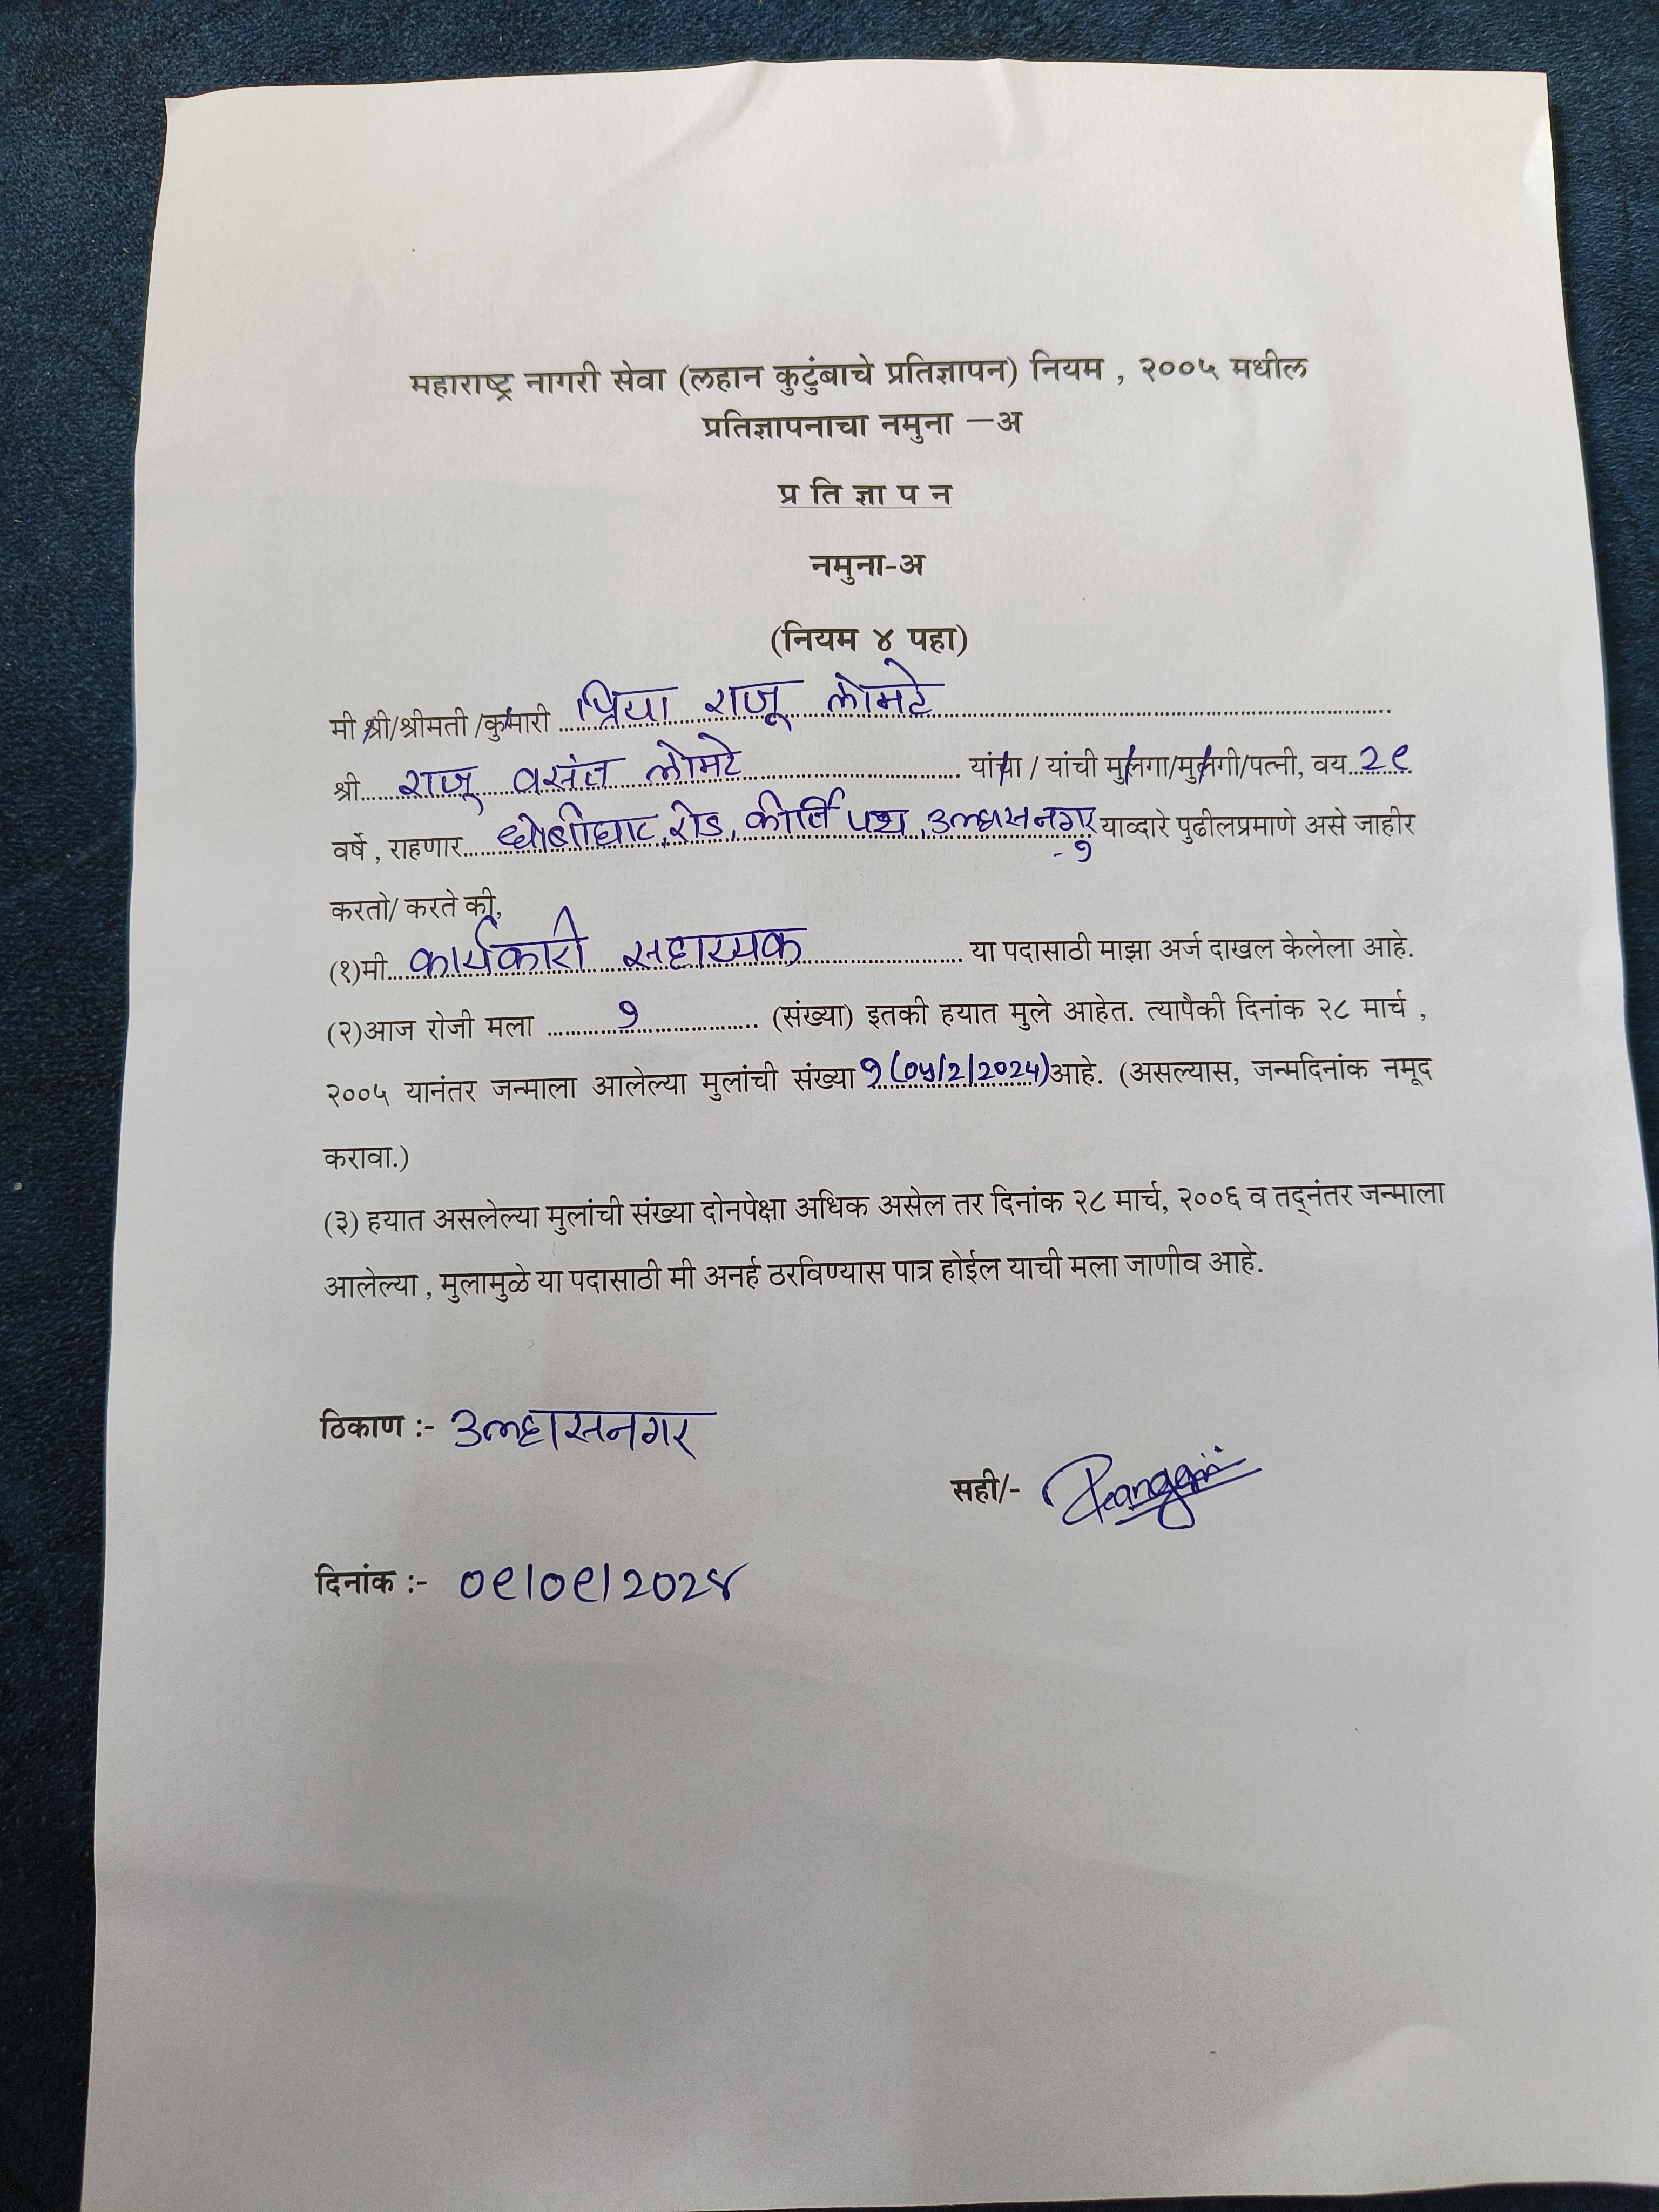 महाराष्ट्र नागरी सेवा (लहान कुटुंबाचे प्रतिज्ञापन) नियम , २००५ मधील
प्रतिज्ञापनाचा नमुना —अ
प्र ति ज्ञा प न
नमुना-अ
(नियम ४ पहा)
मी श्री/श्रीमती /कुमारी ...प्रिया राजू लोमटे...
श्री... राजू वसंत लोमटे ... यांचा / यांची मुलगा/मुलगी/पत्नी, वय...२९...
वर्षे , राहणार... धोबीघाट, रोड, कीर्ति पथ, उल्हासनगर याव्दारे पुढीलप्रमाणे असे जाहीर
- १
करतो/ करते की,
(१)मी...कार्यकारी सहाय्यक... या पदासाठी माझा अर्ज दाखल केलेला आहे.
(२)आज रोजी मला ...१... (संख्या) इतकी हयात मुले आहेत. त्यापैकी दिनांक २८ मार्च ,
२००५ यानंतर जन्माला आलेल्या मुलांची संख्या १ (०५/२/२०२४)आहे. (असल्यास, जन्मदिनांक नमूद
करावा.)
(३) हयात असलेल्या मुलांची संख्या दोनपेक्षा अधिक असेल तर दिनांक २८ मार्च, २००६ व तद्‌नंतर जन्माला
आलेल्या , मुलामुळे या पदासाठी मी अनर्ह ठरविण्यास पात्र होईल याची मला जाणीव आहे.
ठिकाण :- उल्हासनगर
सही/-
दिनांक :- ०९/०९/२०२४